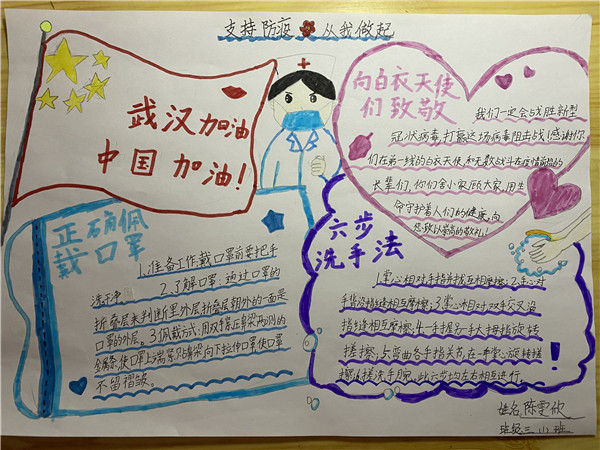 支持防疫 从我做起
武汉加油
中国加油!
向白衣天使
们致敬
我们一定会战胜新型
冠状病毒,打赢这场病毒阻击战!感谢你
们在前一线的白衣天使,和无数战斗在疫情前措的
长辈们,你们舍小家顾大家,用生
命守护着人们的健康,向
您致以崇高的敬礼!
正确佩
戴口罩
1.准备工作戴口罩前要把手
洗干净 2.了解口罩:通过口罩的
折叠层来判断里外层折叠层朝外的一面是
口罩的外层。3.佩戴方式:用双手紧压鼻梁两测的
金属条,使口罩上端紧贴鼻梁向下拉伸口罩使口罩
不留褶皱。
六步
洗手法
1.掌心相对手指并拢互相摩擦;2.手心对
手背沿指缝相互摩擦;3.掌心相对双手交叉沿
指缝相互摩擦;4.一手握另一手大拇指旋转
搓擦;5.弯曲各手指关节,在一手掌心旋转搓
擦;6.搓洗手腕,此六步均左右相互进行。
!
姓名:陈雯欣
班级三、11班